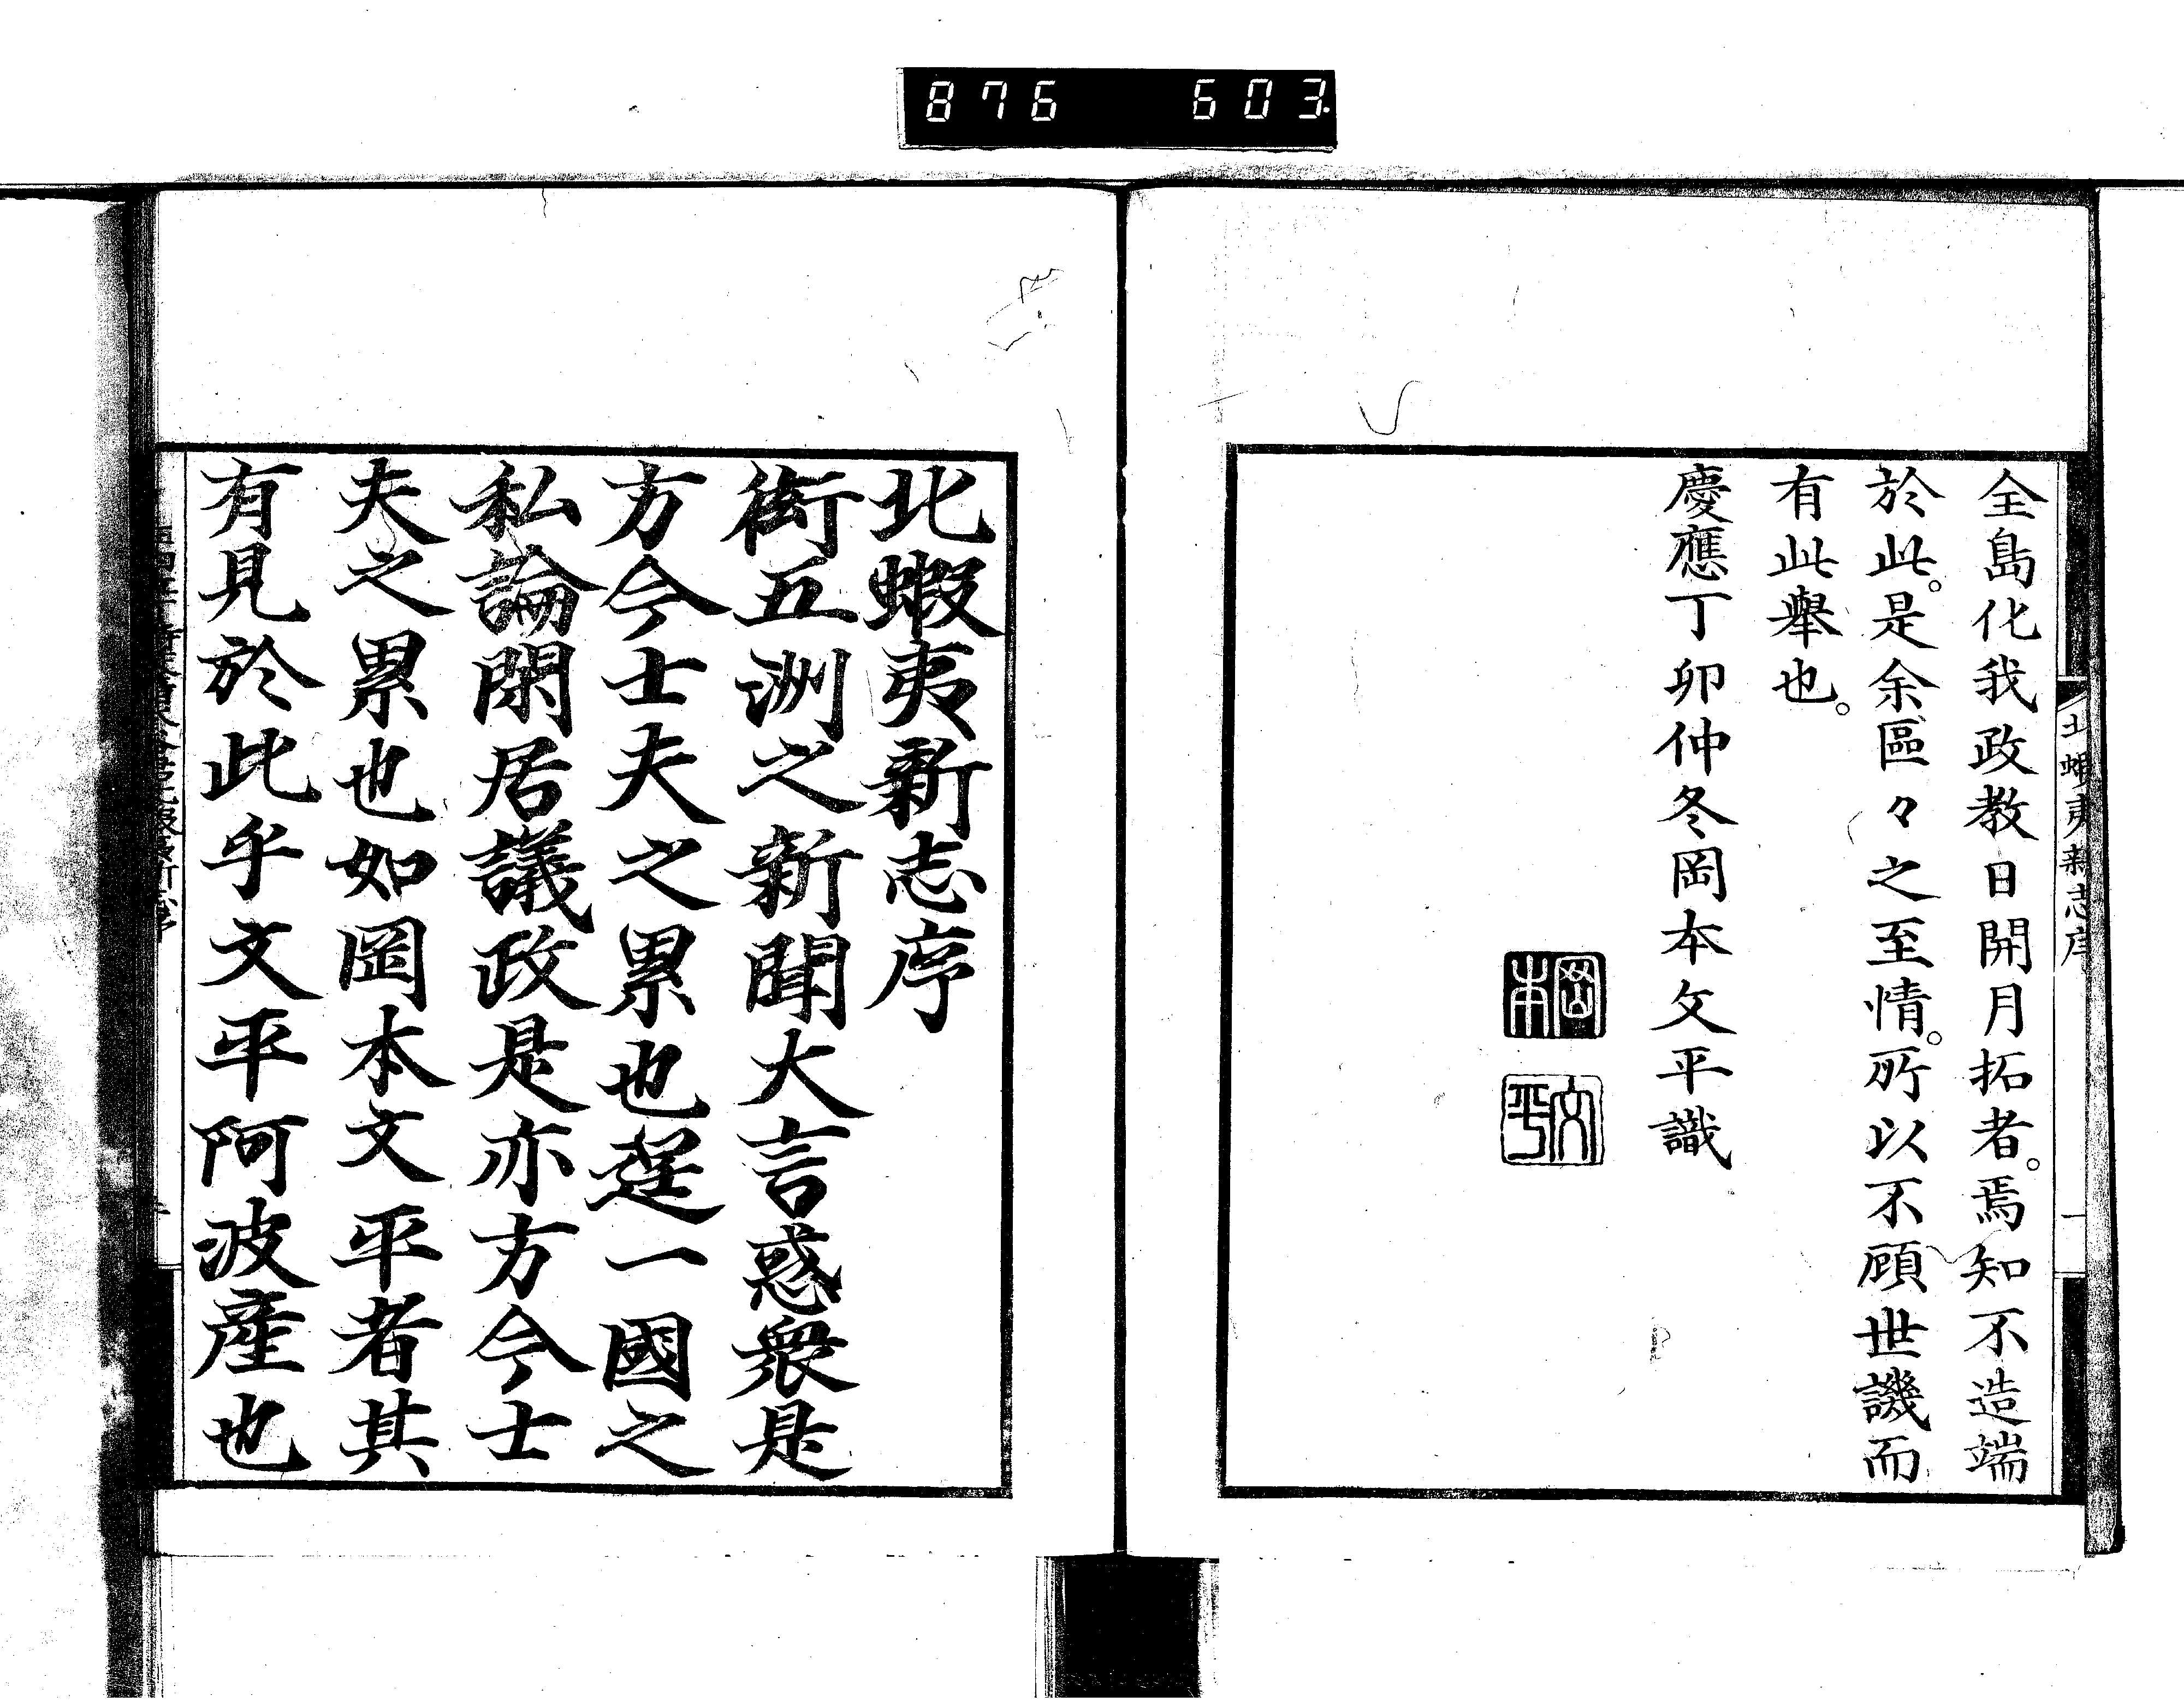 876 603
北蝦夷新志序
一
全島化我政教日開月拓者。焉知不造端
於此。是余區々之至情。所以不顧世譏而
有此舉也。
慶應丁卯仲冬岡本文平識
岡本
文平
北蝦夷新志序
衒五洲之新聞大言惑衆是
方今士夫之累也逞一國之
私論閑居議政是亦方今士
夫之累也如岡本文平者其
有見於此乎文平阿波產也